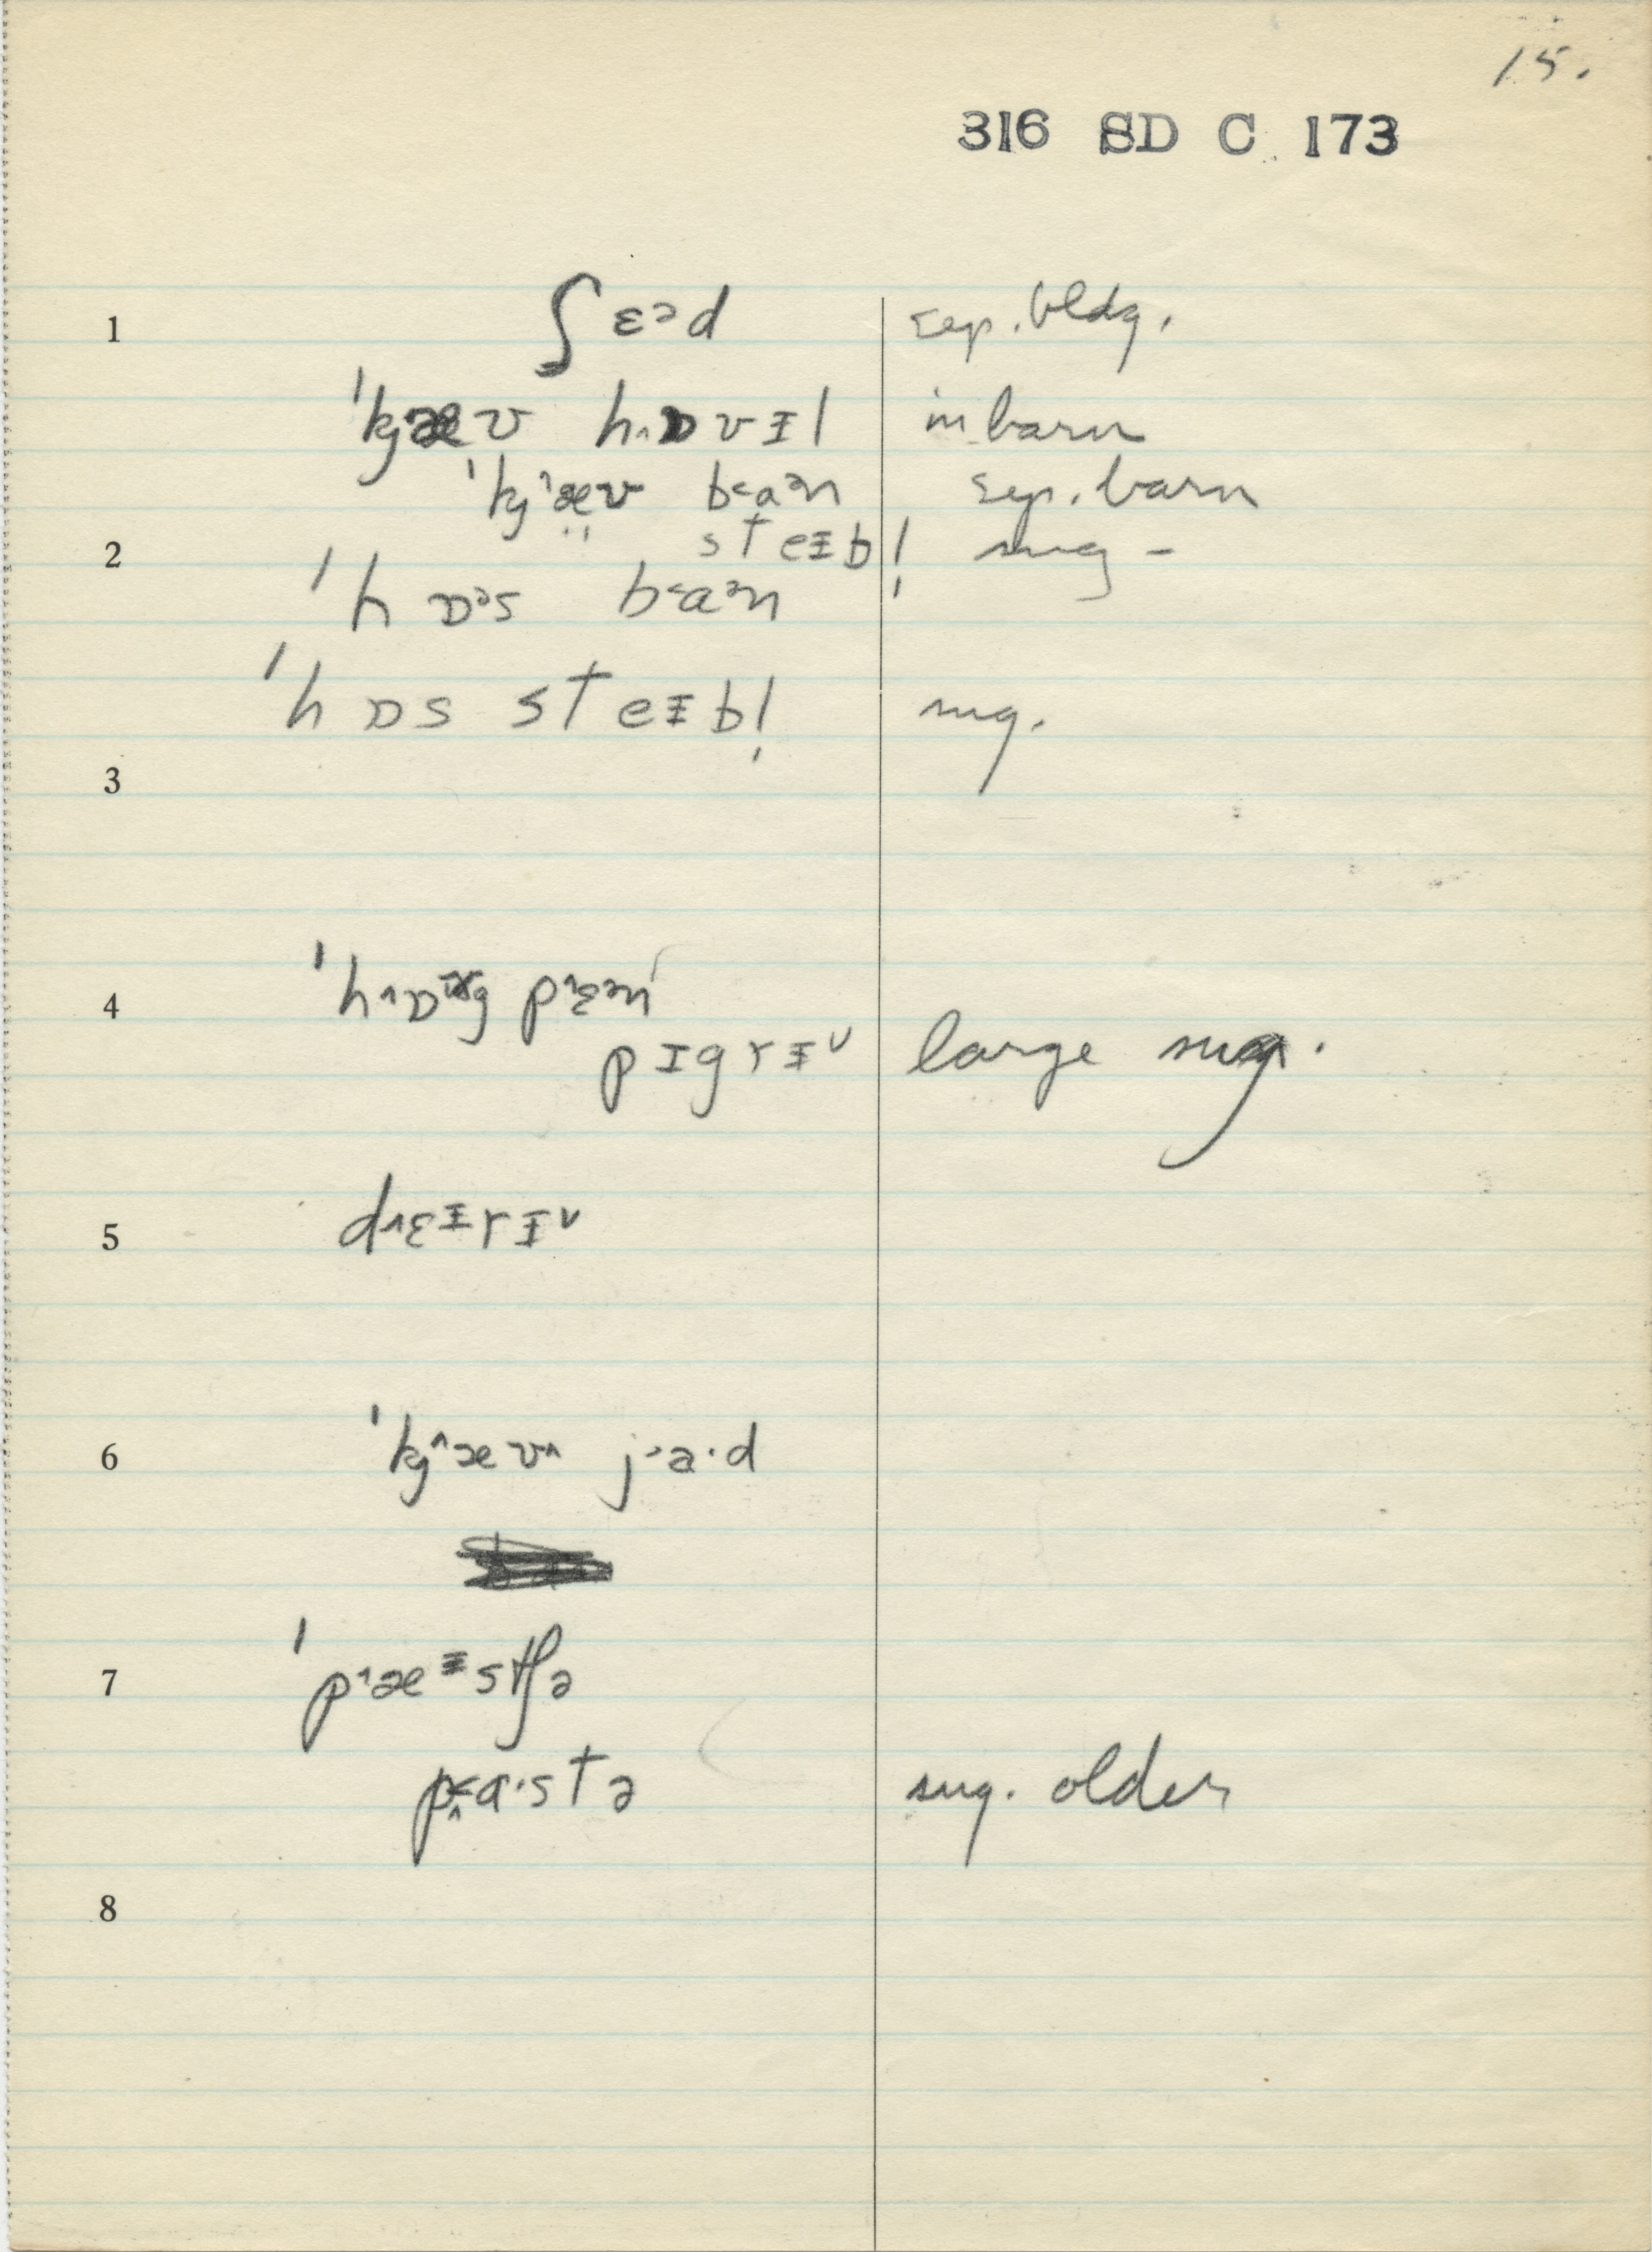 15.
316 SD C 173
1 ʃɛᵊd sep. bldg.
ˈkjæv hɒvɪl in barn
ˈkj˄æv b˂aᵊn sep. barn
2 steɪbl̩ sug -
ˈhɒᵊs b˂aᵊn
ˈhɒs steɪbl̩ sug.
3
4 pɪgrɪ˅ large sug.
5 d˄ɛɪrɪ˅
6 ˈkj˄æv˄ j˃a·d
7 ˈp˄æᶤstʃə
p˂a·stə sug. older
8